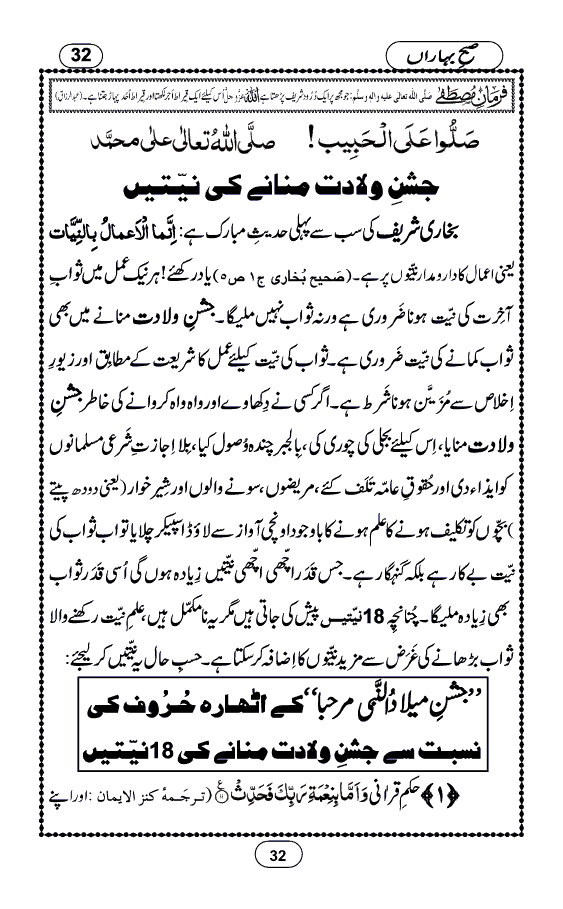 صبحِ بہاراں
32
فرمانِ مُصطَفٰے صلَّی اللہ تعالٰی علیہ واٰلہٖ وسلَّم: جو مجھ پر ایک دُرُود شریف پڑھتا ہے اللہ عزوجل اُس کیلئے ایک قیراط اَجر لکھتا اور قیراط اُحُد پہاڑ جتنا ہے۔ (عبدالرزاق)
صَلُّوا عَلَی الْحَبِیب! صلَّی اللہُ تعالٰی علٰی محمَّد
جشنِ ولادت منانے کی نیّتیں
بخاری شریف کی سب سے پہلی حدیثِ مبارک ہے: اِنَّما الْاَعمالُ بِالنِّیَّات
یعنی اعمال کا دارومدار نیّتوں پر ہے۔ (صَحیح بُخاری ج۱ ص۵) یاد رکھئے! ہر نیک عمل میں ثوابِ
آخِرت کی نیّت ہونا ضَروری ہے ورنہ ثواب نہیں ملیگا۔ جشنِ ولادت منانے میں بھی
ثواب کمانے کی نیّت ضَروری ہے۔ ثواب کی نیّت کیلئے عمل کا شریعت کے مطابِق اور زیورِ
اِخلاص سے مُزَیَّن ہونا شَرط ہے۔ اگر کسی نے دِکھاوے اور واہ واہ کروانے کی خاطر جشنِ
ولادت منایا، اِس کیلئے بجلی کی چوری کی، بِالجبر چندہ وُصول کیا، بِلا اِجازتِ شَرعی مسلمانوں
کو ایذاء دی اور حُقوقِ عامّہ تَلَف کئے، مریضوں، سونے والوں اور شِیر خوار (یعنی دودھ پیتے
) بچّوں کو تکلیف ہونے کا علم ہونے کا باوجود اونچی آواز سے لاؤڈ اسپیکر چلایا تو اب ثواب کی
نیّت بے کار ہے بلکہ گنہگار ہے۔ جس قَدَر اچّھی اچّھی نیّتیں زِیادہ ہوں گی اُسی قَدَر ثواب
بھی زِیادہ ملیگا۔ چُنانچِہ 18 نیّتیں پیش کی جاتی ہیں مگر یہ نامکمّل ہیں، علمِ نیّت رکھنے والا
ثواب بڑھانے کی غَرَض سے مزید نیّتوں کا اِضافہ کر سکتا ہے۔ حسبِ حال یہ نیّتیں کر لیجئے:
”جشنِ میلادُ النَّبی مرحبا“ کے اٹھارہ حُرُوف کی
نسبت سے جشنِ ولادت منانے کی 18 نیّتیں
﴿۱﴾ حکمِ قراٰنی وَاَمَّا بِنِعْمَةِ رَبِّكَ فَحَدِّثْ (ترجَمۂ کنز الایمان: اور اپنے
32